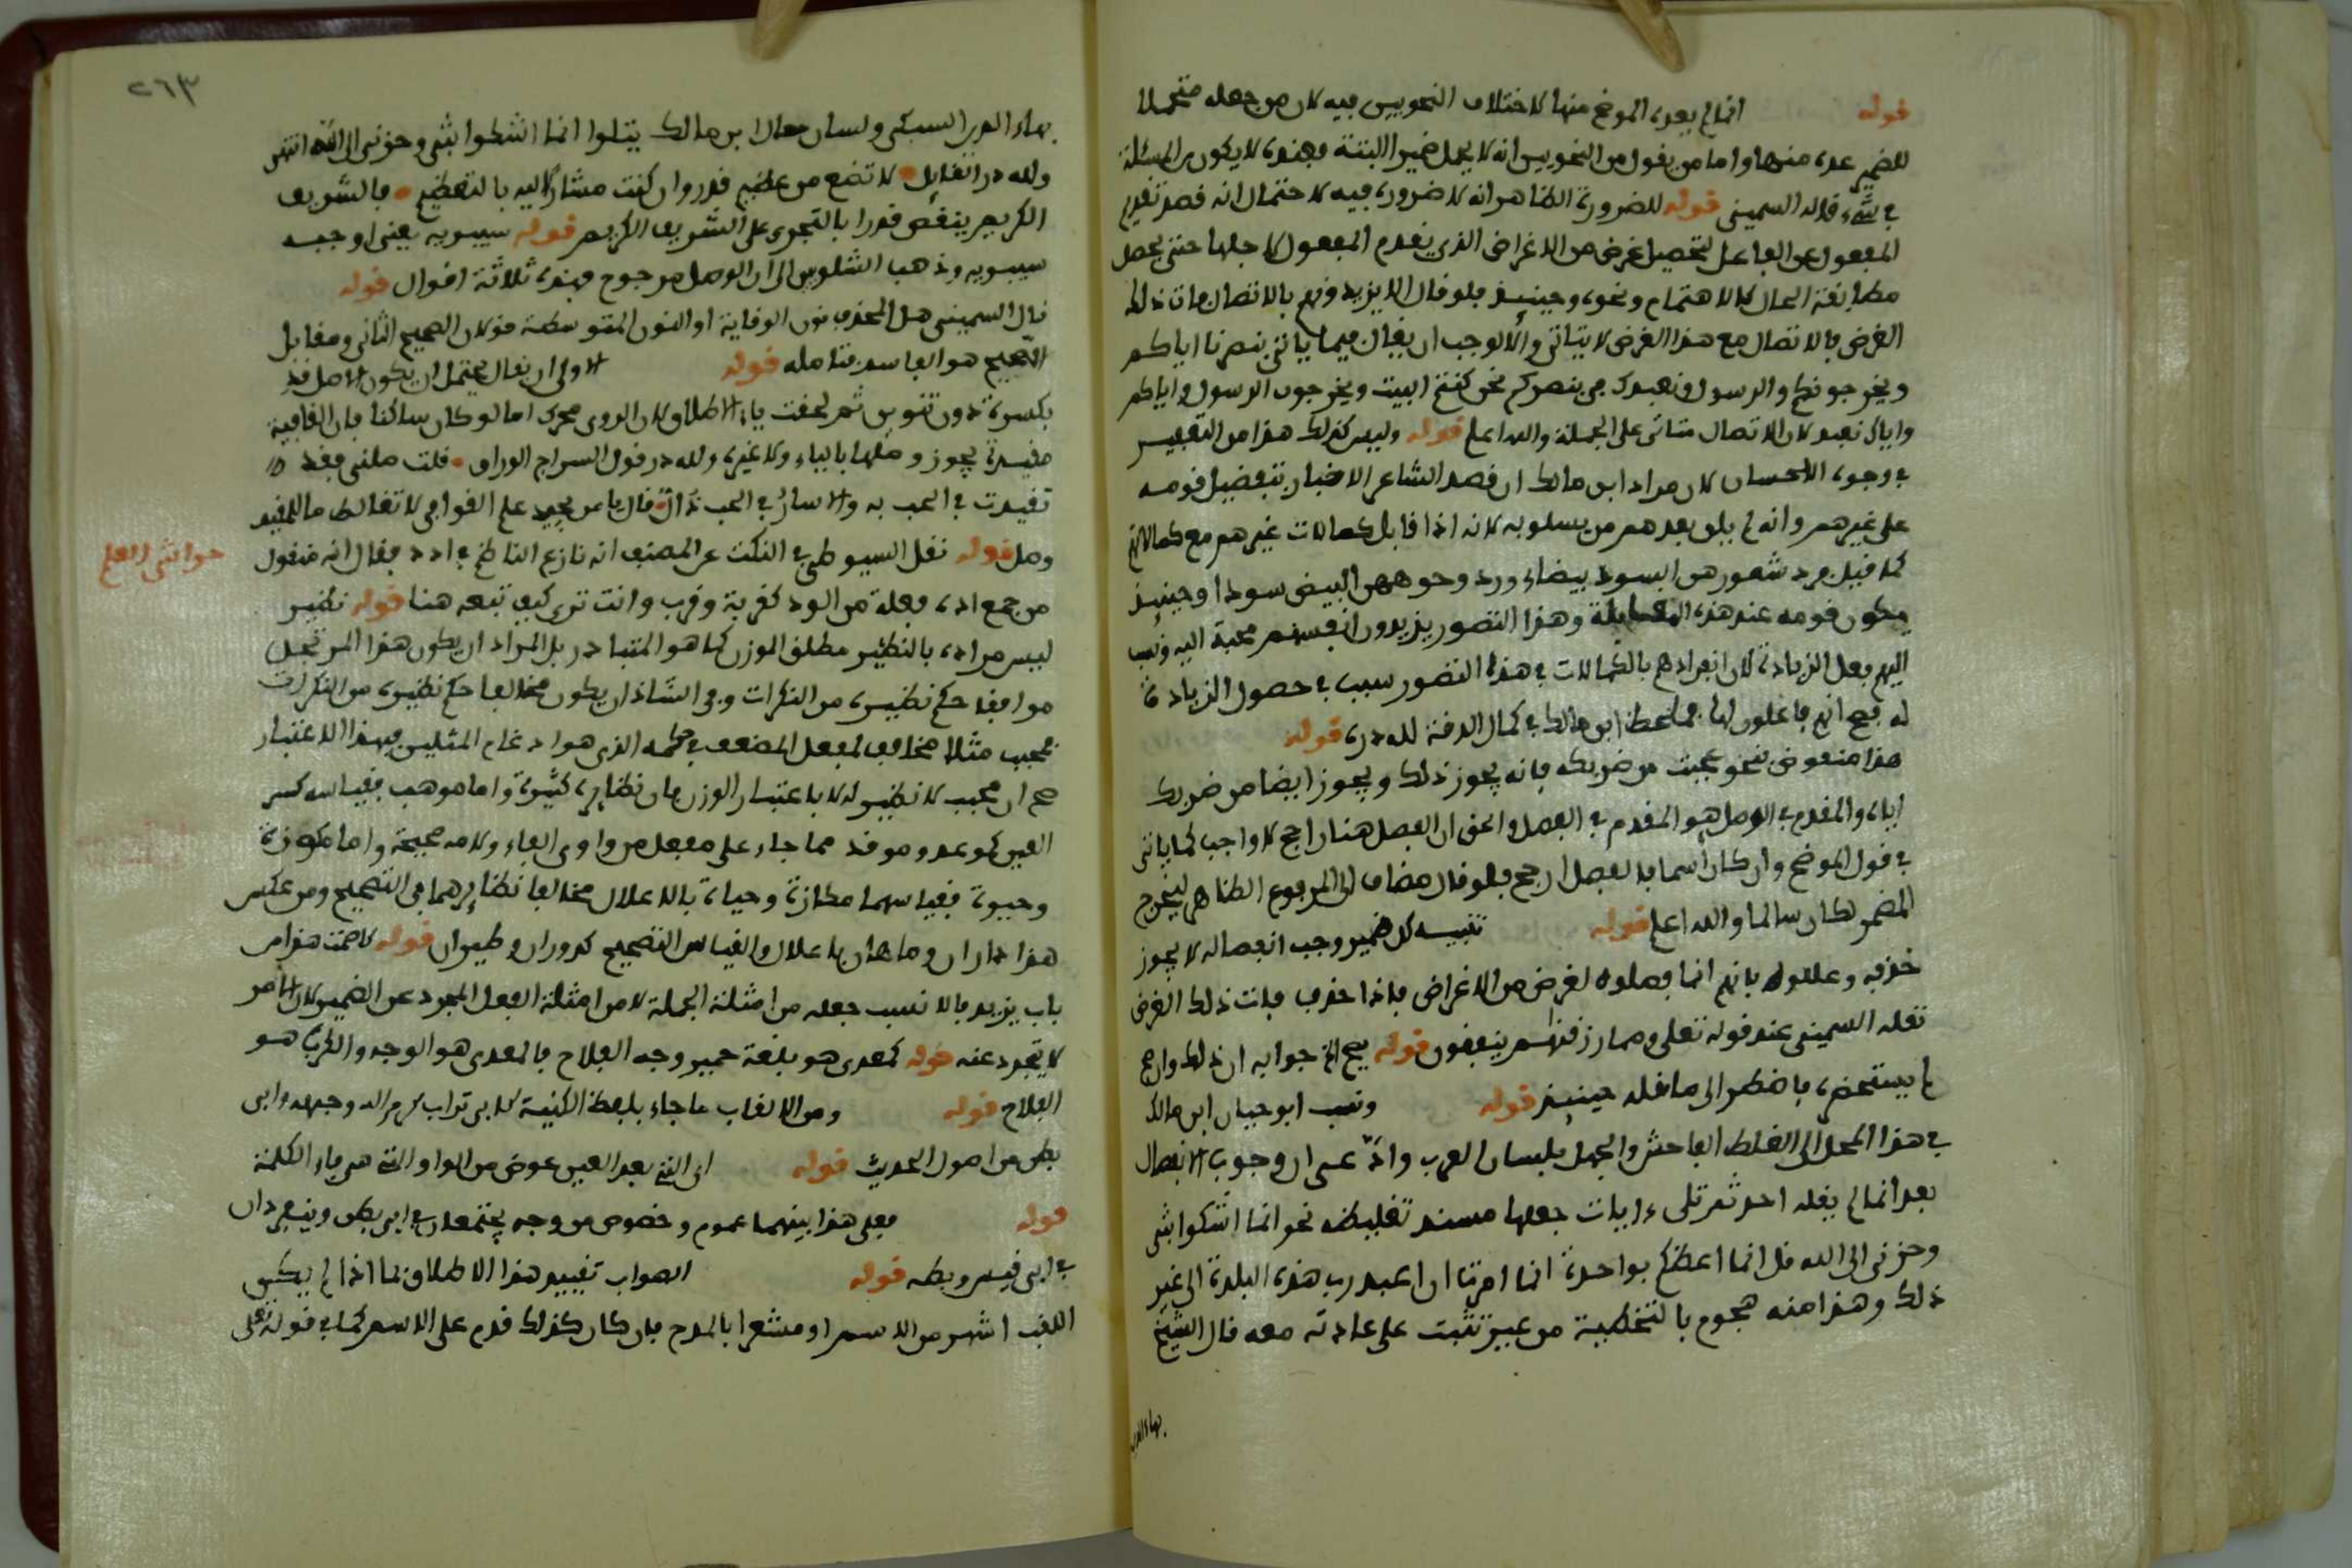 قوله انما لم يعده الموضح منها لاختلاف النحويين فيه لان من جعله متحملا
للضمير عده منها واما من يقول من النحويين انه لا يحمل ضميرا البتة فعنده لا يكون من المسئلة
في شيء قاله السميني قوله للضرورة الظاهر انه لا ضرورة فيه لاحتمال انه قصد تقديم
المفعول على الفاعل لتحصيل غرض من الاغراض الذي يقدم المفعول لاجلها حتى يحصل
مطابقة الحال كالاهتمام ونحوه وحينئذ فلو قال الا يزيدونهم بالاتصال فات ذلك
الغرض فالاتصال مع هذا الغرض لا يتاتى والا لوجب ان يقال فيما ياتي ينصرنا اياكم
ويخرجونكم والرسول ونعبدك في ينصركم نحن كنتم ابيت ويخرجون الرسول واياكم
واياك نعبد لان الاتصال متاتى على الجملة والله اعلم قوله وليس كذلك هذا من التعبير
في وجوه الاحسان لان مراد ابن مالك ان قصد الشاعر الاخبار بتفضيل قومه
على غيرهم وانه لم يلق بعدهم من يسلو به لانه اذا قابل كمالات غيرهم مع كمالاتهم
كما قيل فرد شعورهن السود بيضا ورد وجوههن البيض سودا وحينئذ
يكون قومه عند هذه المقابلة وهذا التصور يزيدون انفسهم محبة اليه ونسب
اليهم فعل الزيادة لان انفرادهم بالكمالات في هذا التصور سبب في حصول الزيادة
له فصح انهم فاعلون لها فما لحظ ابن مالك في كمال الدقة لله دره قوله
هذا منقوض بنحو عجبت من ضربكه فانه يجوز ذلك ويجوز ايضا من ضربك
اياه والمقدم في الوصل هو المقدم في الفصل والحق ان الفصل هنا راجح لا واجب كما ياتي
في قول الموضح وان كان اسما فالفصل ارجح فلو قال مضاف الى المرفوع الظاهر ليخرج
المضمر لكان سالما والله اعلم قوله تنبيه كل ضمير وجب انفصاله لا يجوز
حذفه وعللوه بانهم انما فصلوه لغرض من الاغراض فاذا حذف فات ذلك الغرض
نقله السميني عند قوله تعلى ومما رزقنهم ينفقون قوله يصح الخ جوابه ان ذلك وان
لم يستحضره فاضطر الى ما فعله حينئذ قوله ونسب ابو حيان ابن مالك
في هذا المحل الى الغلط الفاحش والجهل بلسان العرب وادعى ان وجوب الانفصال
بعد انما لم يقله احد ثم تلى ءايات جعلها مسند تغليطه نحو انما اشكوا بثي
وحزني الى الله قل انما اعظكم بواحدة انما امرت ان اعبد رب هذه البلدة الى غير
ذلك وهذا منه هجوم بالتخطية من غير تثبت على عادته معه قال الشيخ
بهاء الدين
٢٦٣
بهاء الدين السبكي ولسان حال ابن مالك يتلوا انما اشكوا بثي وحزني الى الله انتهى
ولله در القايل لا تضع من عظيم قدر وان كنت مشارا اليه بالتعظيم فالشريف
الكريم ينقص قدرا بالتجري على الشريف الكريم قوله سيبويه يعني اوجبه
سيبويه وذهب الشلوبين الى ان الوصل مرجوح فهذه ثلاثة اقوال قوله
قال السميني هل المحذوف نون الوقاية او النون المتوسطة قولان الصحيح الثاني ومقابل
الصحيح هو الفاسد فتامله قوله الاولى ان يقال يحتمل ان يكون الاصل قد
بكسرة دون تنوين ثم لحقت ياء الاطلاق لان الروي محرك اما لو كان ساكنا فان القافية
مقيدة يجوز وصلها بالياء ولا غيره ولله در قول السراج الوراق قلت صلني فقد
تقيدت في الحب به والاسار في الحب ذل قال يا من يجيد علم القوافي لا تغالط ما للمقيد
وصل قوله نقل السيوطي في النكت عن المصنف انه نازع الناظم في ادد فقال انه منقول
حواشي العلم
من جمع اده فعلة من الود كغربة وغرب وانت ترى كيف تبعه هنا قوله نظير
ليس مراده بالنظير مطلق الوزن كما هو المتبادر بل المراد ان يكون هذا المرتجل
موافقا حكم نظيره من النكرات وفي الشاذ ان يكون مخالفا حكم نظيره من النكرات
فمحبب مثلا مخالف لمفعل المضعف في حكمه الذي هو ادغام المثلين فبهذا الاعتبار
صح ان محبب لا نظير له لا باعتبار الوزن فان نظايره كثيرة واما موهب فقياسه كسر
العين كموعد وموقد مما جاء على مفعل من واوي الفاء ولامه صحيحة واما مكوزة
وحيوة فقياسهما مكازة وحياة بالاعلال مخالفا نظايرهما في التصحيح ومن عكس
هذا داران وماهان باعلال والقياس التصحيح كدوران وطيران قوله لاصمت هذا من
باب يزيد فالانسب جعله من امثلة الجملة لا من امثلة الفعل المجرد عن الضمير لان الامر
لا يتجرد عنه قوله كمعدي هو بلغة حمير وجه الفلاح فالمعدي هو الوجه والكرب هو
الفلاح قوله ومن الالقاب ما جاء بلفظ الكنية كابي تراب كرم الله وجهه وابي
بطن من اصول الحديث قوله اي التي بعد العين عوض من الواو التي هي فاء الكلمة
قوله فعلى هذا بينهما عموم وخصوص من وجه يجتمعان في ابي بطن وينفردان
في ابي قيس وبطه قوله الصواب تقييد هذا الاطلاق بما اذا لم يكن
اللقب اشهر من الاسم او مشعرا بالمدح فان كان كذلك قدم على الاسم كما في قوله تعلى